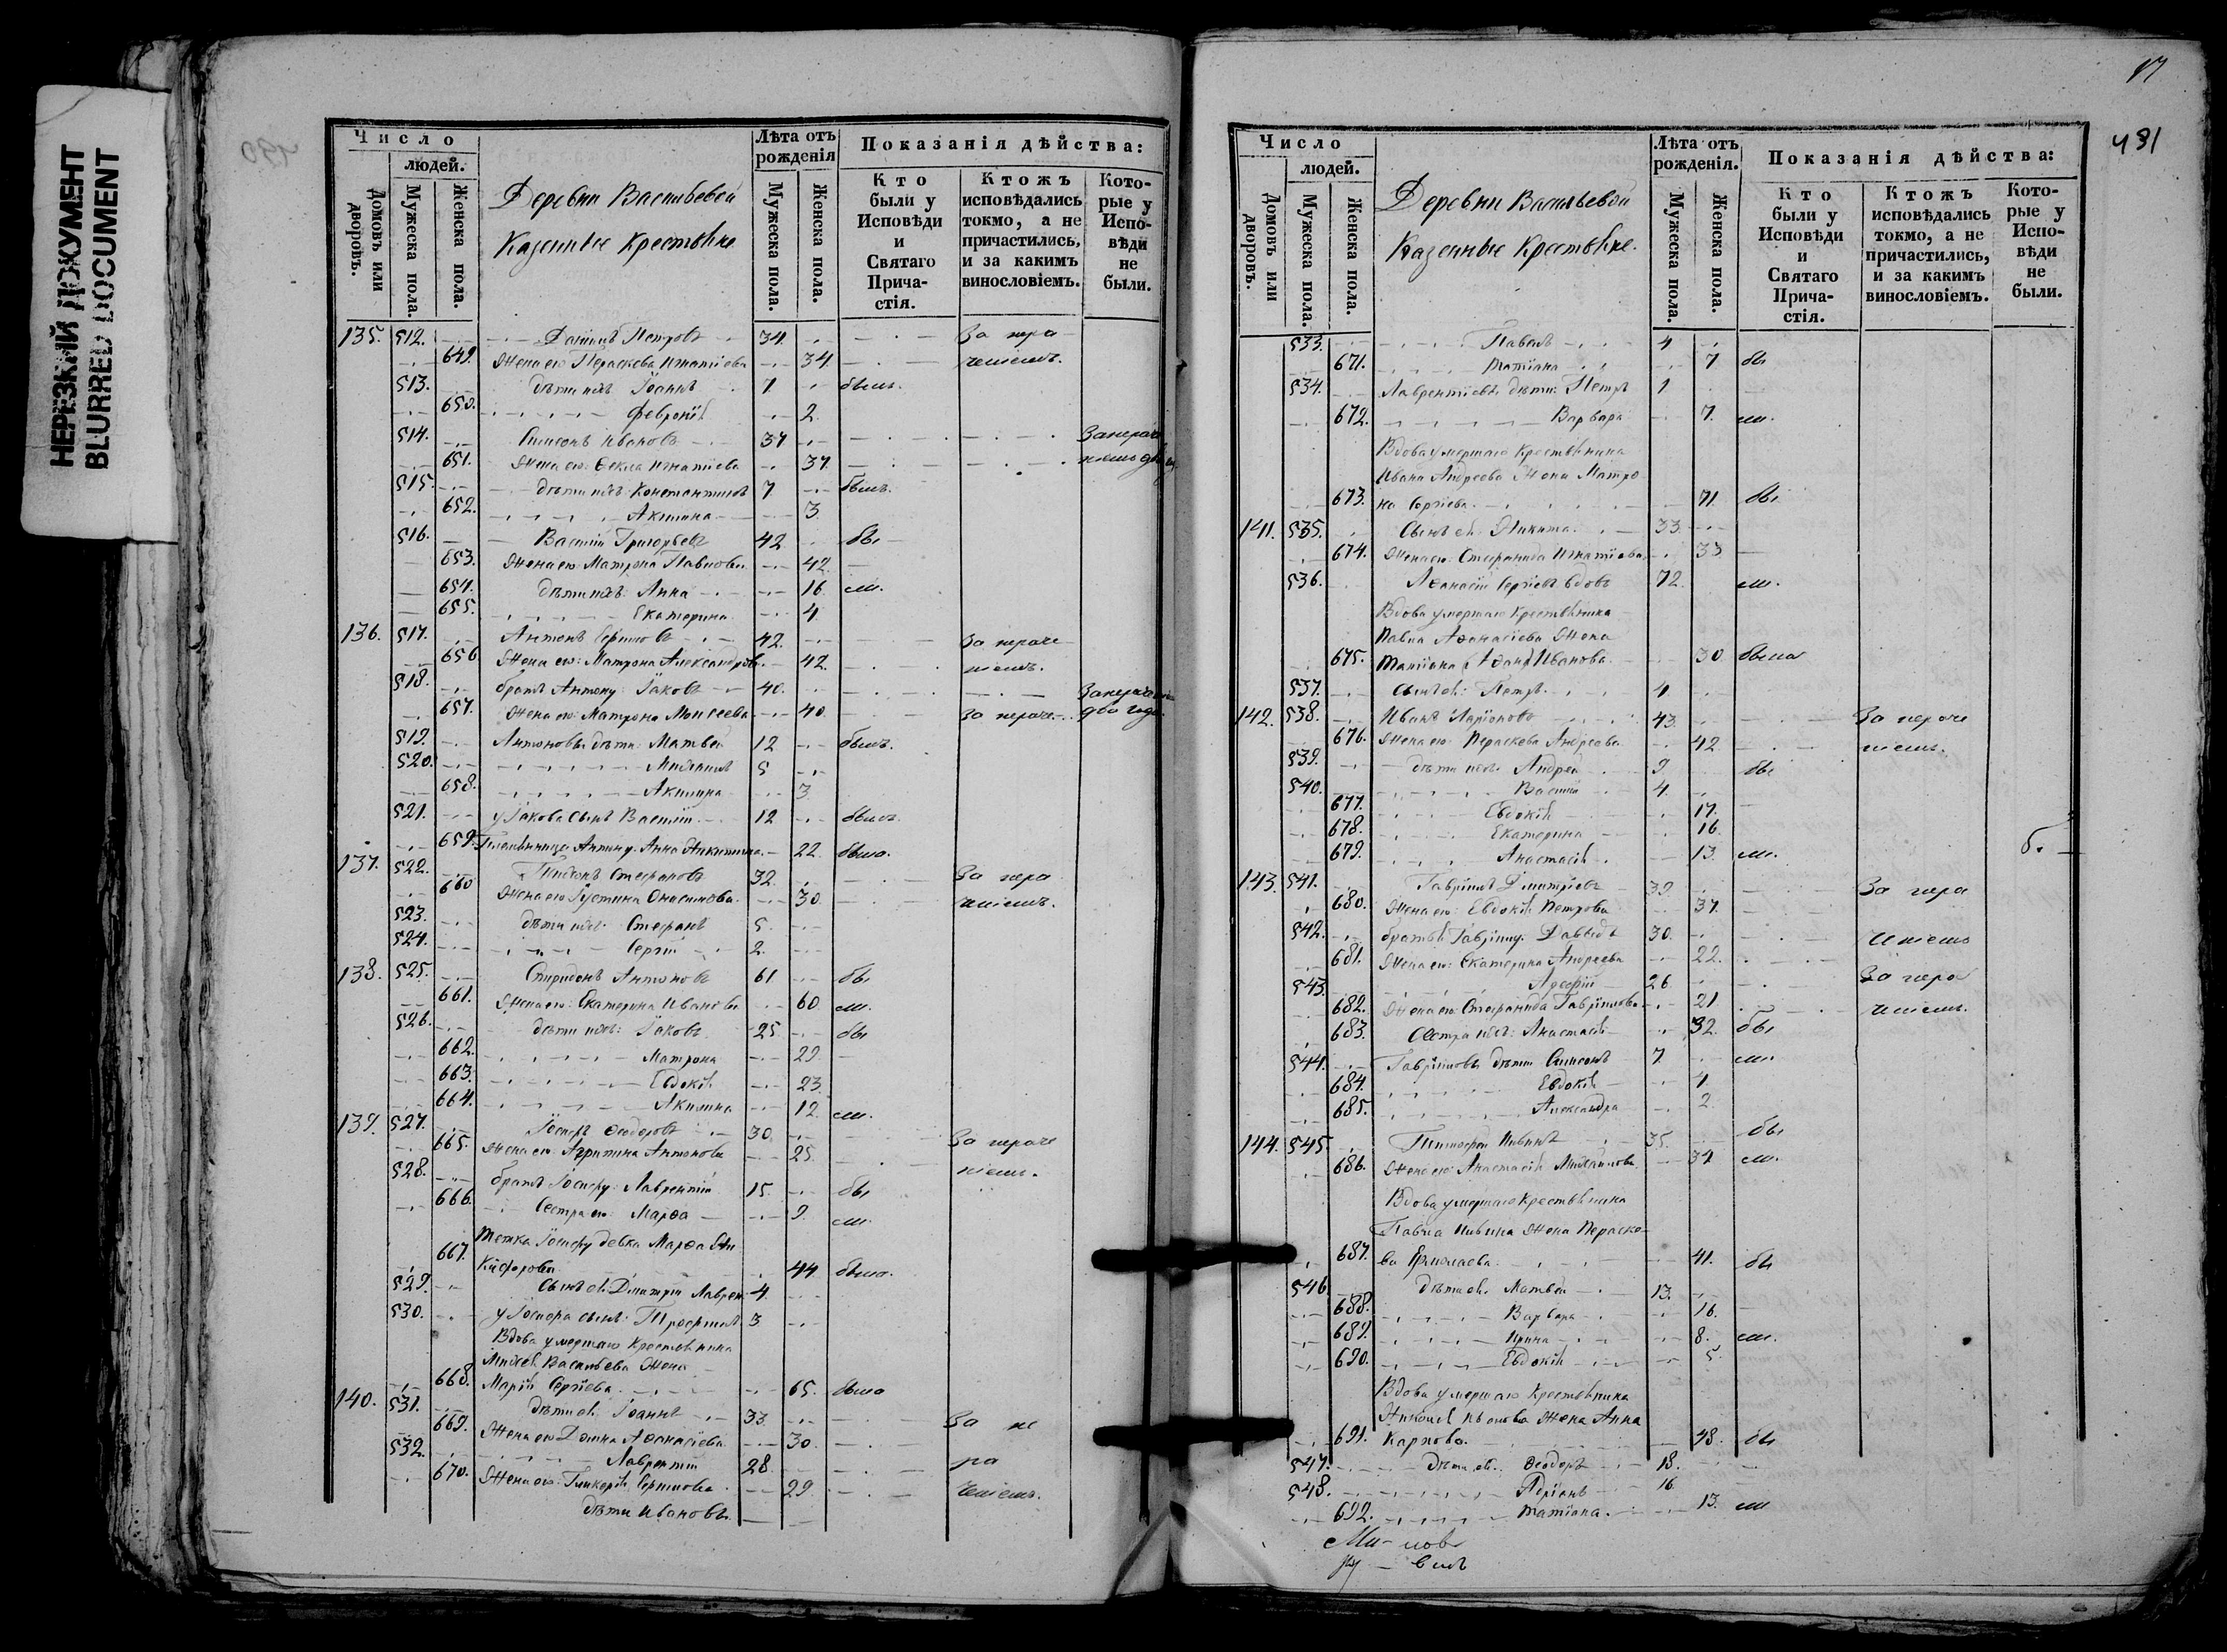 НЕРЕЗКИЙ ДОКУМЕНТ
BLURRED DOCUMENT
Число
людей.
Домовъ или дворовъ.
Мужеска пола.
Женска пола.
Деревни Васильевой
Казенные Крестьяне
Лѣта отъ рожденія
Мужеска пола.
Женска пола.
Показанія дѣйства:
Кто были у Исповѣди и Святаго Прича-стія.
Ктожъ исповѣдались токмо, а не причастились, и за какимъ винословіемъ.
Кото-рые у Испо-вѣди не были.
135. 512. Петровъ 34 За нера
649. Жена его Параскева Игнатіева 34 ченіемъ.
513. дѣти ихъ Іоаннъ 7 былъ.
650. Февронія 2
514. Симеонъ Ивановъ 37 За нераче
651. Жена его: Ѳекла Игнатіева 37
515. дѣти ихъ Константинъ 7 былъ.
652. Акилина 3
516. Василій Григорьевъ 42 бы
653. Жена его Матрона Павлова 42
654. дѣти ихъ: Анна 16 ли.
655. Екатерина 4
136. 517. Антонъ 42 За нераче
656 Жена его: Матрона Александрова 42 ніемъ.
518. братъ Антону: Іаковъ 40.
657. Жена его: Матрона Моисеева 40 За нераче два года.
519. Антоновы дѣти: Матвей 12 былъ.
520. Михаилъ 5
658. Акилина 3
521. у Іакова сынъ Василій 12 былъ
659. Племянница Антону Анна Никитина 22 была.
137. 522. Тихонъ Стефановъ 32. За нера
660 Жена его Іустина Онисимова 30 ченіемъ.
523. дѣти ихъ Стефанъ 5
524. Сергій 2.
138. 525. Спиридонъ Антоновъ 61 бы
661. Жена его: Екатерина Иванова 60 ли.
526. дѣти ихъ: Іаковъ 25 бы
662. Матрона 29
663. Евдокія 23
664. Акилина 12 ли.
139. 527. Іосифъ Ѳедоровъ 30 За нераче
665. Жена его: Агрипина Антонова 25. ніемъ.
528. братъ Іосифу: Лаврентій 15 бы
666. Сестра его: Марѳа 9 ли.
Тетка Іосифу девка Марѳа Ни
667. кифорова 44 была.
529. Сынъ ея Дмитрій Лаврен. 4
530. у Іосифа сынъ: Трофимъ 3
Вдова умершаго Крестьянина
Михея Васильева Жена
668. Марія Сергіева 65. была
140. 531. дѣти ея: Іоаннъ 33 За не
669. Жена его Домна Аѳанасіева 30
532. Лаврентій 28 ра
670. Жена его: Гликерія 29 ченіемъ.
дѣти Ивановы
17
431
Число
людей.
Домовъ или дворовъ.
Мужеска пола.
Женска пола.
Деревни Васильевой
Казенные Крестьяне.
Лѣта отъ рожденія.
Мужеска пола.
Женска пола.
Показанія дѣйства:
Кто были у Исповѣди и Святаго Прича-стія.
Ктожъ исповѣдались токмо, а не причастились, и за какимъ винословіемъ.
Кото-рые у Испо-вѣди не были.
533. Павелъ 4
671. Татіана 7 бы
534. Лаврентіевы дѣти: Петръ 1
672. Варвара 7. ли.
Вдова умершаго Крестьянина
Ивана Андреева Жена Матро
673. на Сергіева 71 бы
141. 535. Сынъ ея Никита 33
674. Жена его: Стефанида Игнатіева 33
536. Аѳанасій Сергіевъ вдовъ 72. ли.
Вдова умершаго Крестьянина
Павла Аѳанасіева Жена
675. Татіана Иванова 30 была
537. Сынъ ея: Петръ 4
142. 538. Иванъ Иларіоновъ 43 За нераче
676. Жена его: Параскева Андреева 42 ніемъ.
539. дѣти ихъ: Андрей 9 бы
540. Василій 4.
677. Евдокія 17.
678. Екатерина 16
679. Анастасія 13 ли.
143. 541. Гавріилъ Дмитріевъ 39 За нера
680. Жена его: Евдокія Петрова 37.
542. братья Гавріилу: Давыдъ 30. ченіемъ
681. Жена его: Екатерина Андреева 22.
543. 26 За нера
682. Жена его: Стефанида Гавріилова 21 ченіемъ.
683. Сестра ихъ: Анастасія 32. бы
544. Гавріиловы дѣти Симеонъ 7 ли.
684. Евдокія 4
685. Александра 2
144. 545. Тимофей 35. бы
686. Жена его Анастасія Михайлова 34 ли.
Вдова умершаго Крестьянина
Павла Жена Параске
687. ва Ермолаева 41. бы
546. Дѣти ея: Матвей 13.
688. Варвара 16.
689. Ирина 8. ли.
690. Евдокія 5
Вдова умершаго Крестьянина
Жена Анна
691. Карпова. 48. бы
547. Дѣти ея: Ѳеодоръ 18.
548. Адріанъ 16
692. Татіана. 13. ли